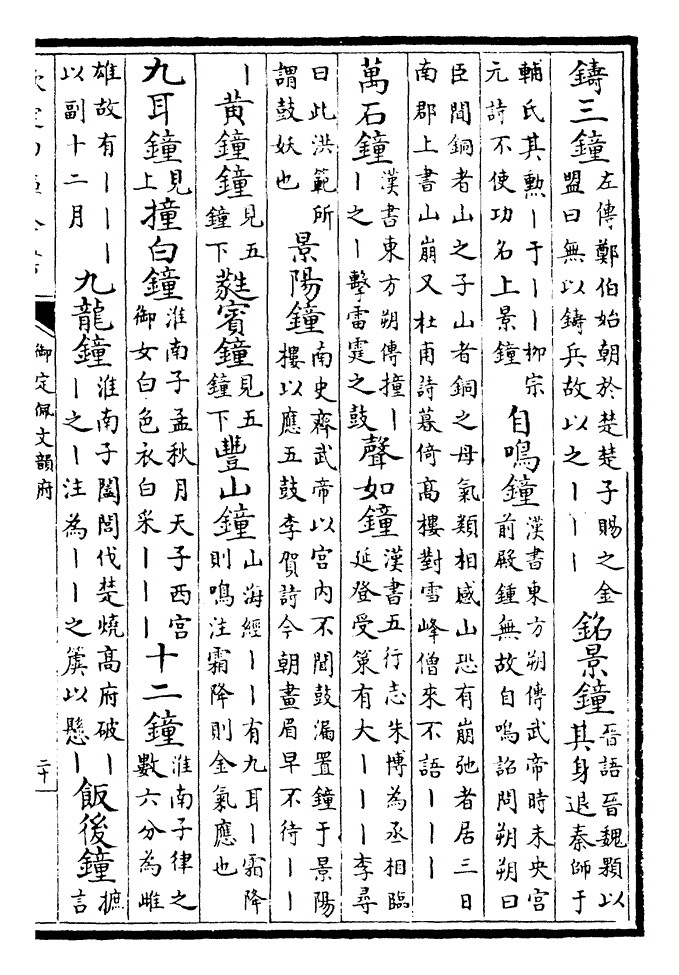 鑄三鐘
左傳鄭伯始朝於楚楚子賜之金
盟曰無以鑄兵故以之丨丨丨
銘景鐘
晉語晉魏顆以
其身退秦師于
輔氏其勲丨于丨丨栁宗
元詩不使功名上景鐘
自鳴鐘
漢書東方朔傳武帝時未央宮
前殿鍾無故自鳴詔問朔朔曰
臣聞銅者山之子山者銅之母氣類相感山恐有崩弛者居三日
南郡上書山崩又杜甫詩暮倚髙樓對雪峰僧來不語丨丨丨
萬石鐘
漢書東方朔傳撞丨
丨之丨擊雷霆之鼓
聲如鐘
漢書五行志朱博為丞相臨
延登受策有大丨丨丨李尋
曰此洪範所
謂鼓妖也
景陽鐘
南史齊武帝以宫内不聞鼓漏置鐘于景陽
樓以應五鼓李賀詩今朝畫眉早不待丨丨
丨
黄鐘鐘
見五
鐘下
蕤賓鐘
見五
鐘下
豐山鐘
山海經丨丨有九耳丨霜降
則鳴注霜降則金氣應也
九耳鐘
見
上
撞白鐘
淮南子孟秋月天子西宮
御女白色衣白采丨丨丨
十二鐘
淮南子律之
數六分為雌
雄故有丨丨丨
以副十二月
九龍鐘
淮南子闔閭伐楚燒髙府破丨
丨之丨注為丨丨之簴以懸丨
飯後鐘
摭
言
御定佩文韻府
二十